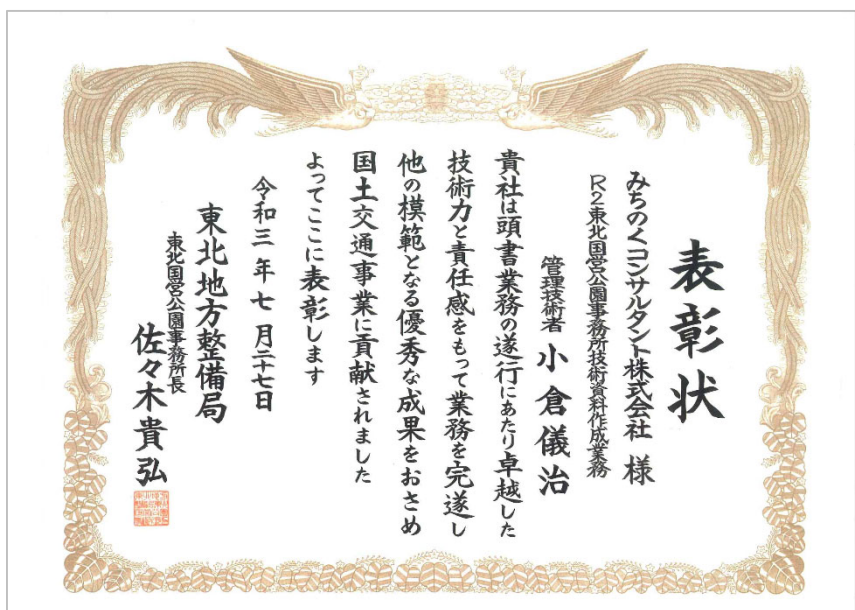 表彰状
みちのくコンサルタント株式会社 様
R2東北国営公園事務所技術資料作成業務
管理技術者 小倉儀治
貴社は頭書業務の遂行にあたり卓越した
技術力と責任感をもって業務を完遂し
他の模範となる優秀な成果をおさめ
国土交通事業に貢献されました
よってここに表彰します
令和三年七月二十七日
東北地方整備局
東北国営公園事務所長
佐々木貴弘